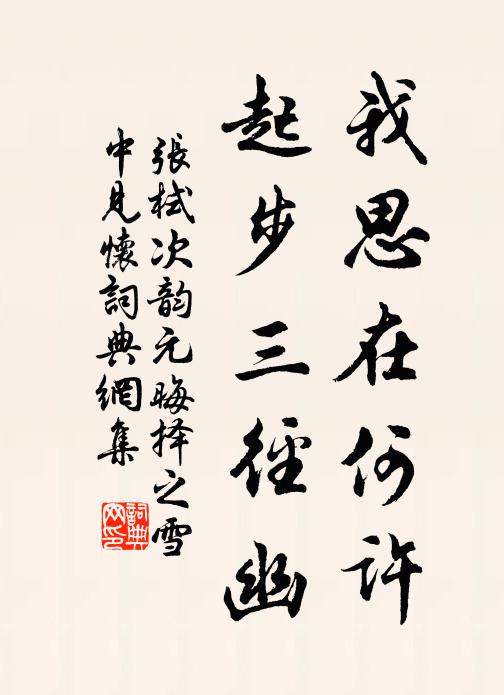 我思在何许
起步三径幽
張栻次韵元晦择之雪
中見懷詞典網集
詞典
网印